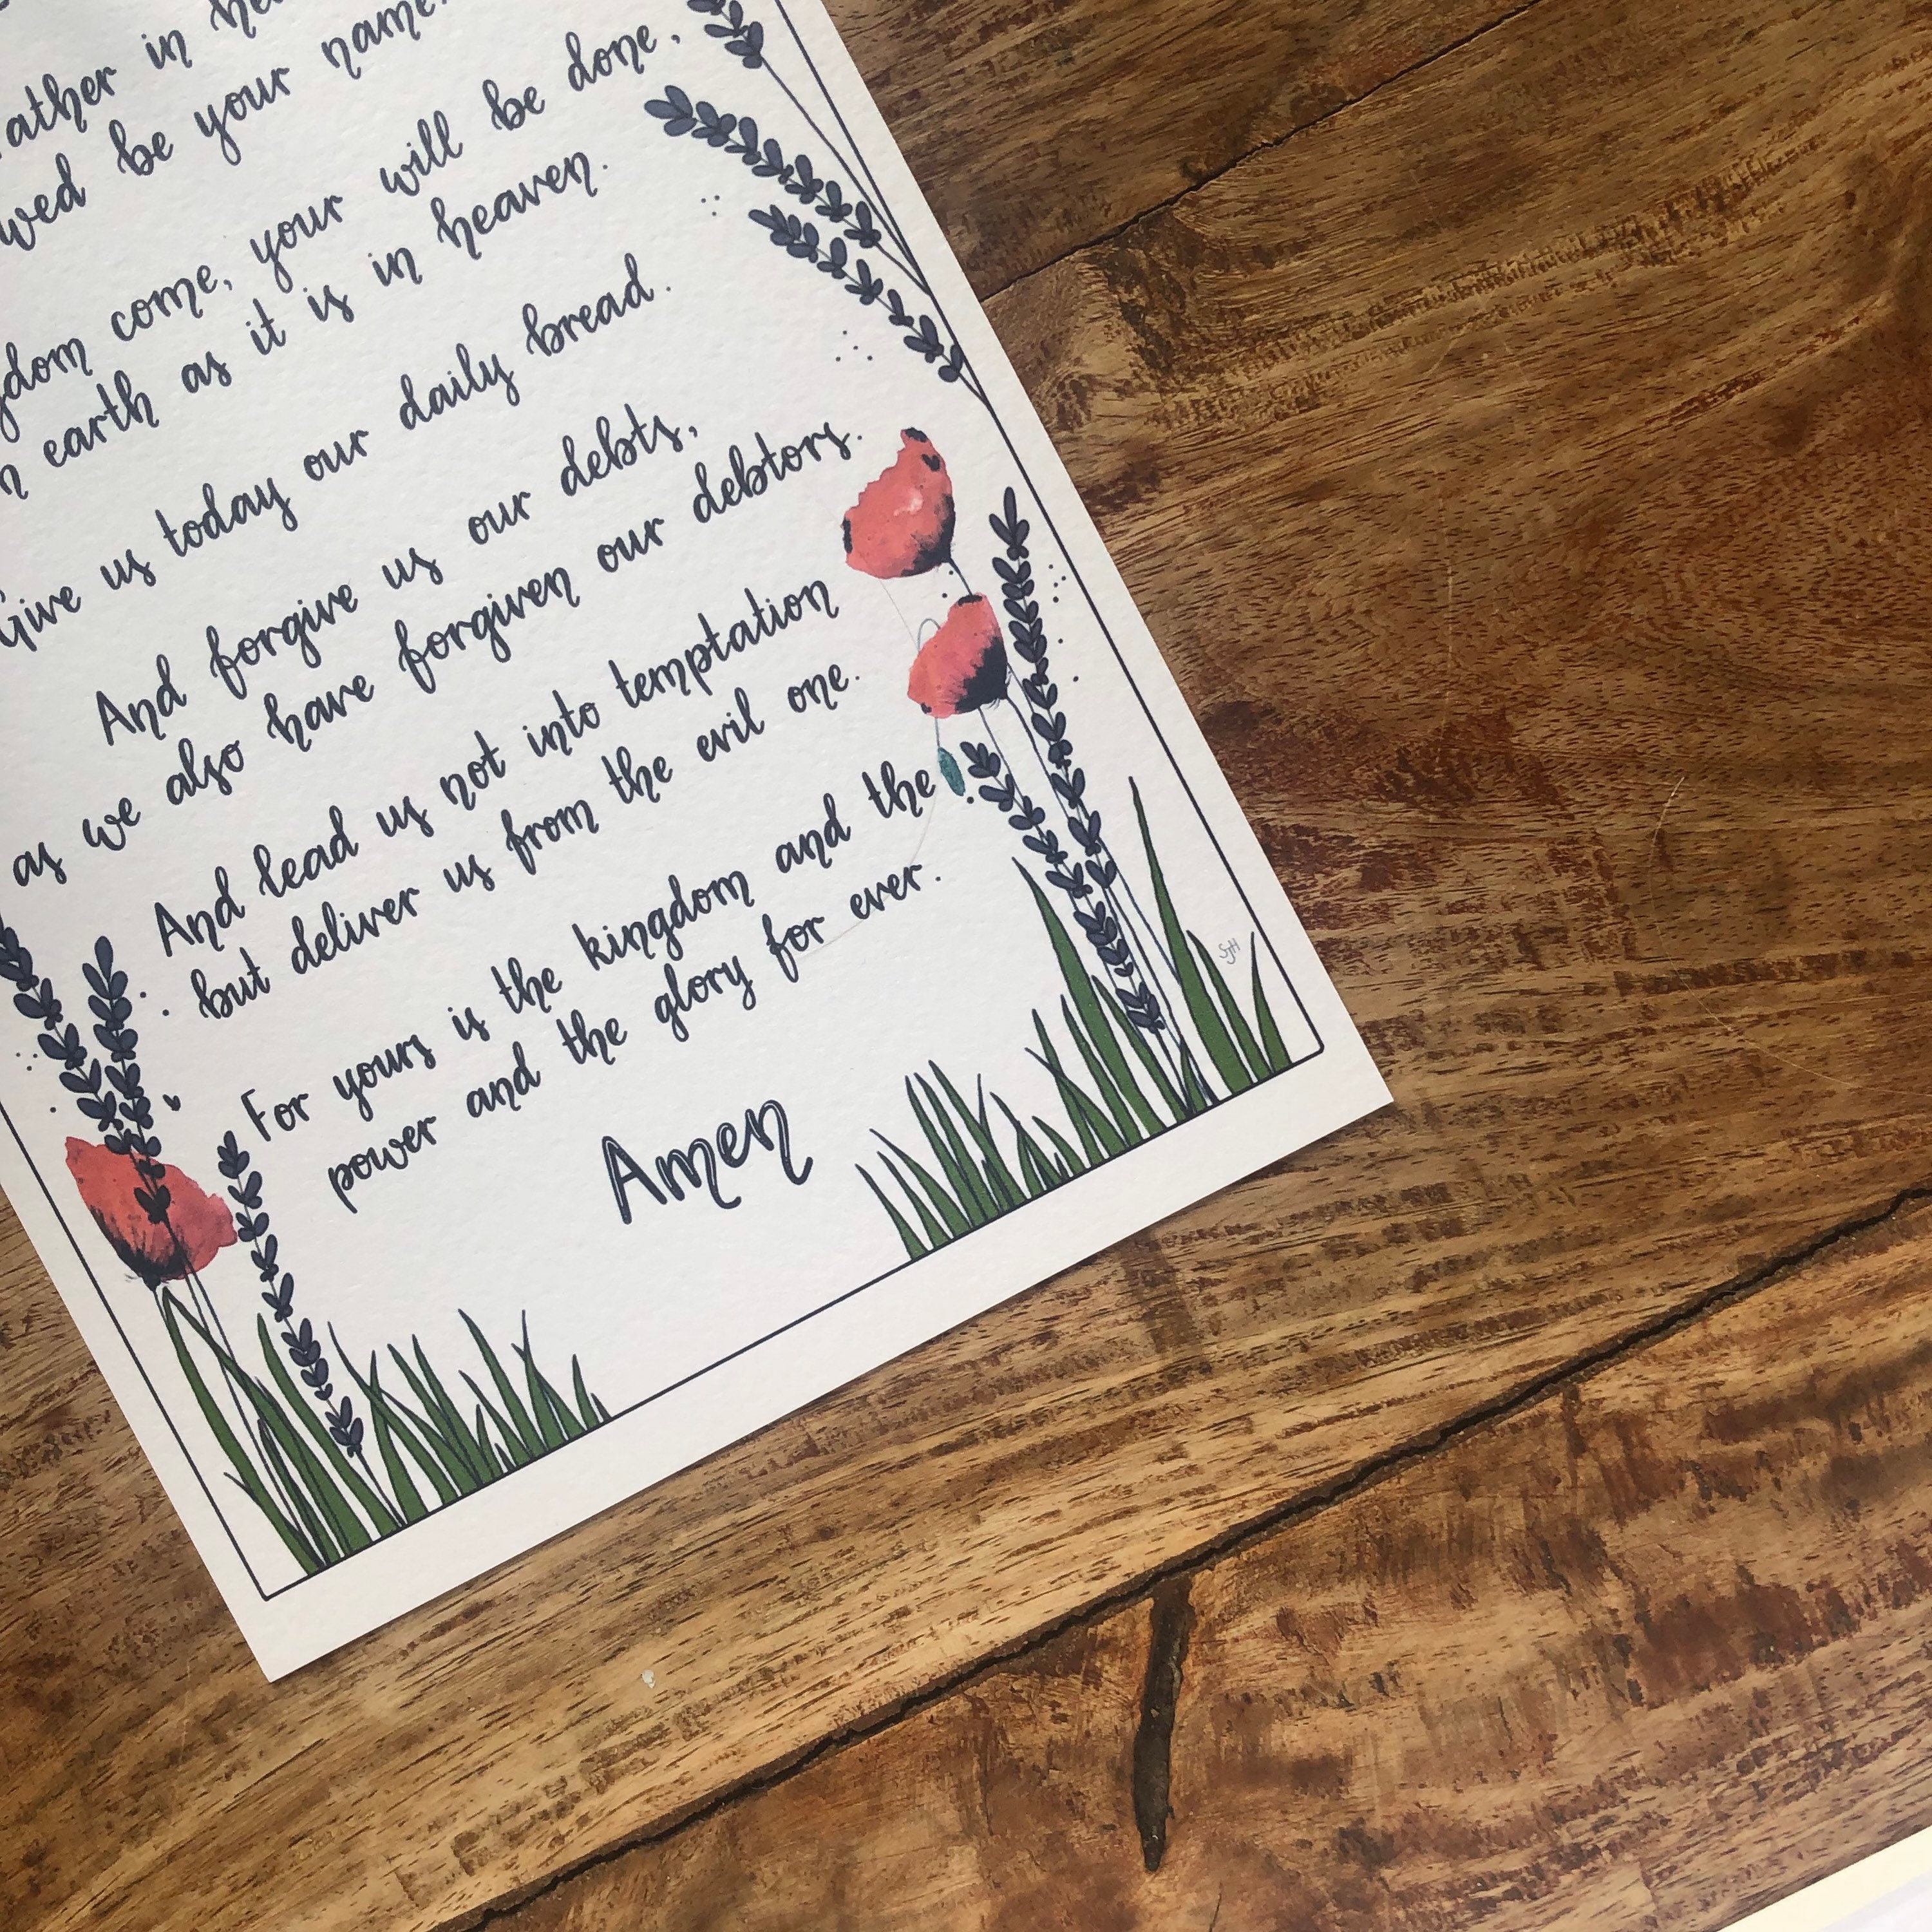 ather in he
wed be your name.
gdom come, your will be done,
n earth as it is in heaven.
Give us today our daily bread.
And forgive us our debts,
as we also have forgiven our debtors.
And lead us not into temptation
but deliver us from the evil one.
For yours is the kingdom and the
power and the glory for ever.
Amen
SJH